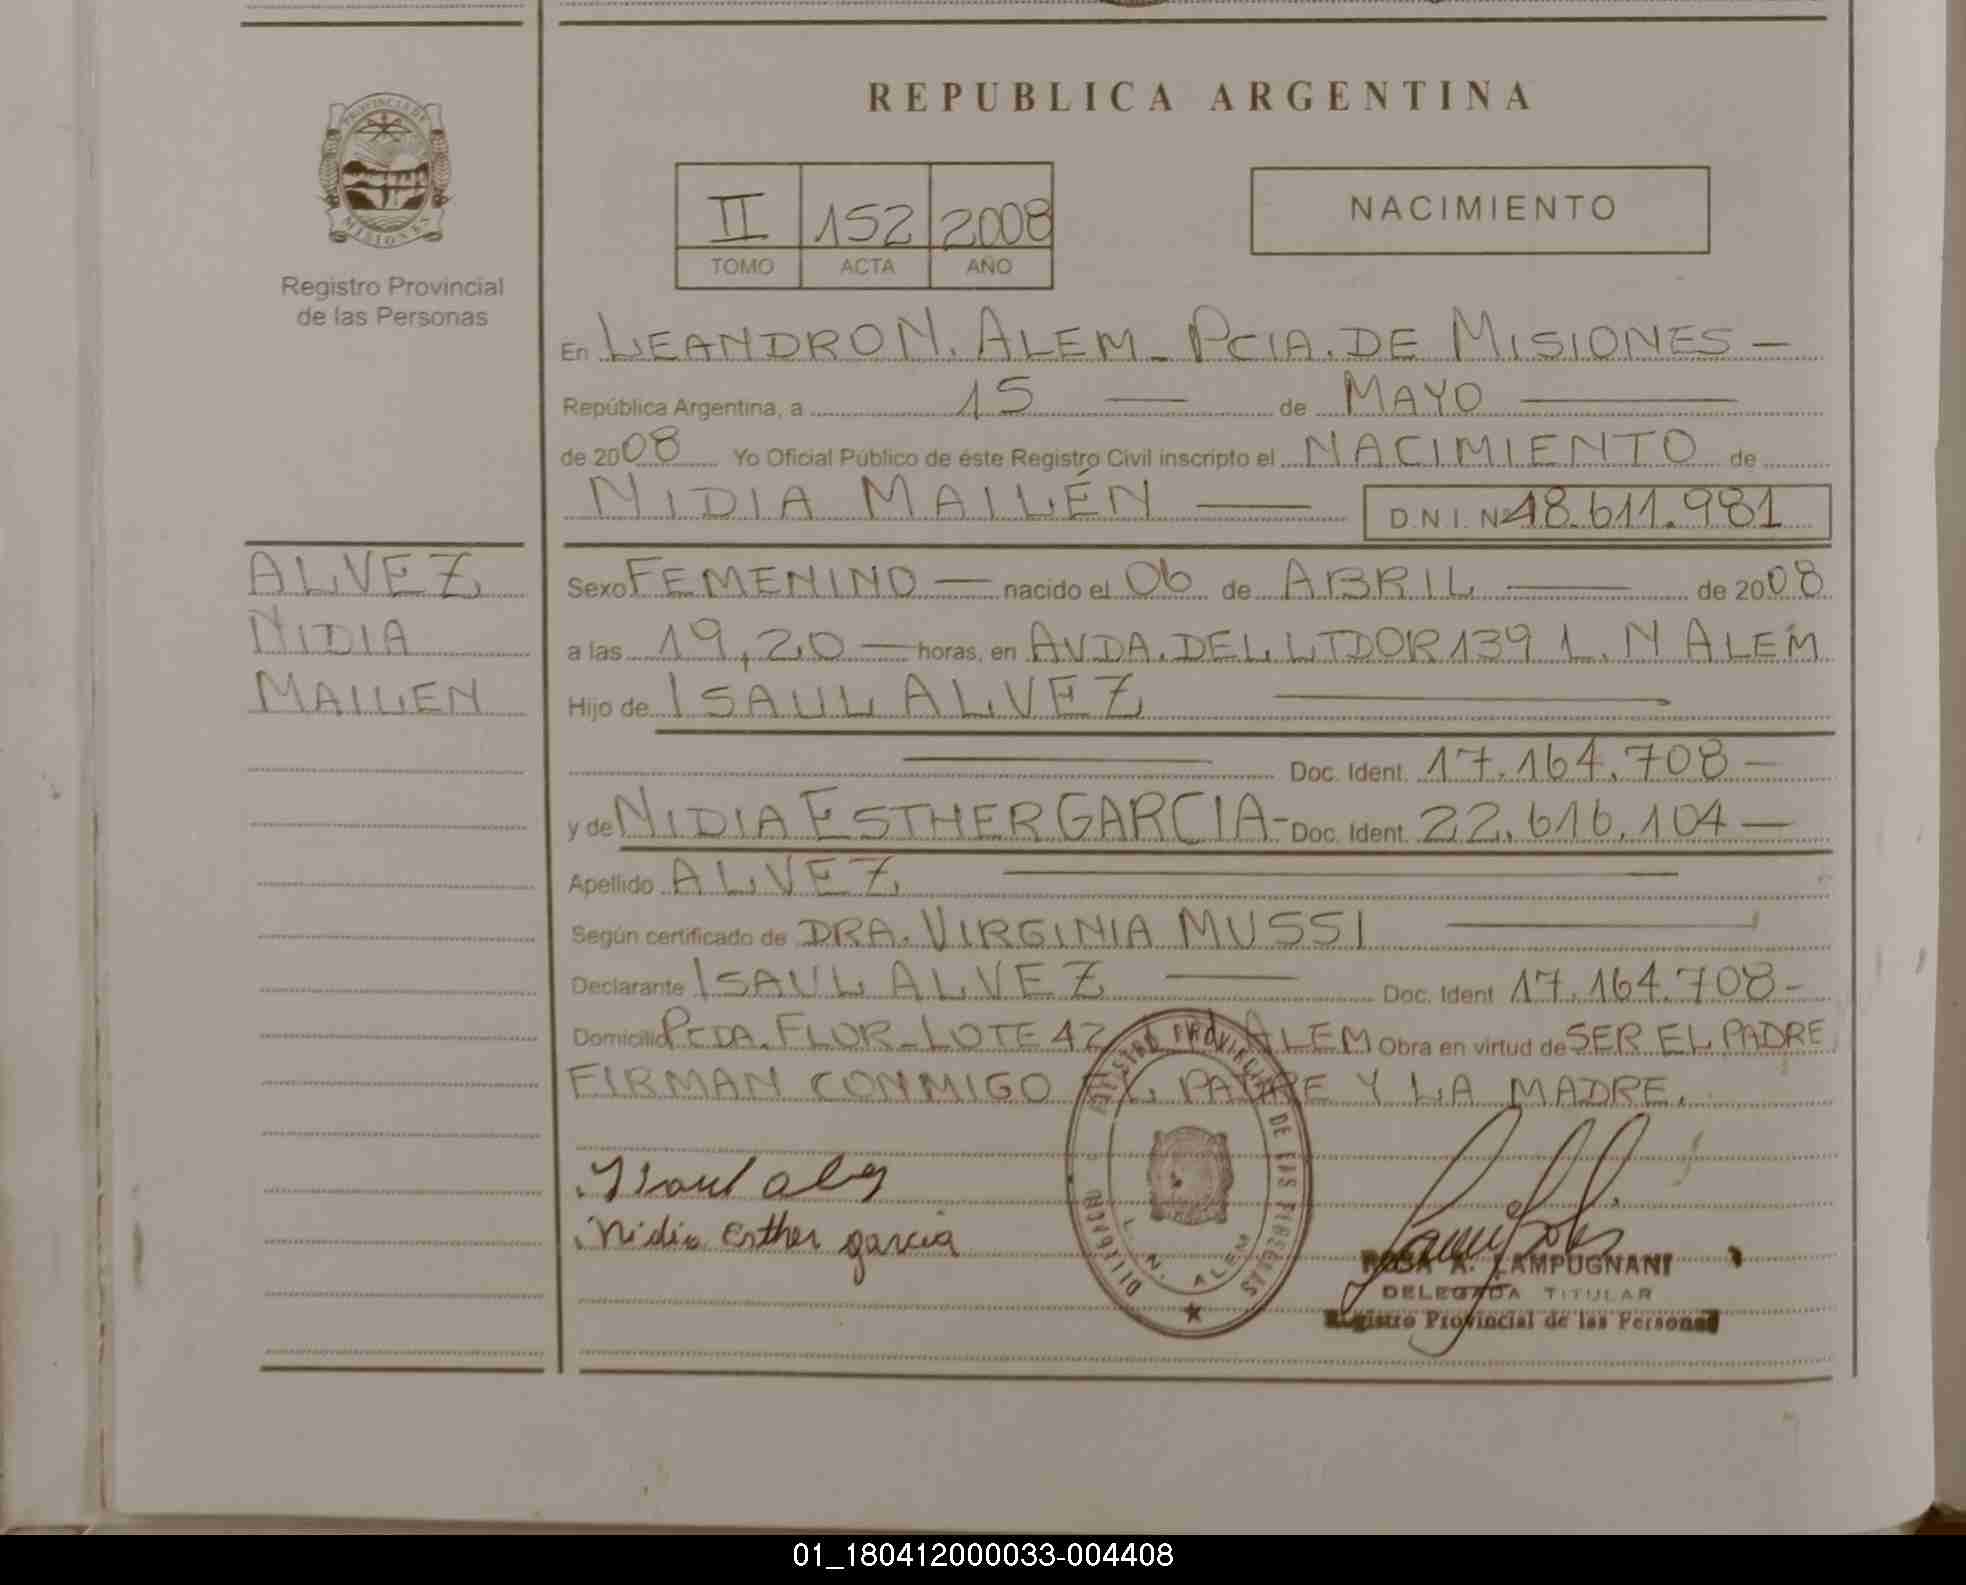 REPUBLICA ARGENTINA
PROVINCIA DE
MISIONES
Registro Provincial
de las Personas
II 152 2008
TOMO ACTA AÑO
NACIMIENTO
En LEANDRO N. ALEM - PCIA. DE MISIONES -
República Argentina, a 15 — de MAYO —
de 2008 Yo Oficial Público de éste Registro Civil inscripto el NACIMIENTO de
NIDIA MAILÉN — D.N.I. Nº 48.611.981
ALVEZ
NIDIA
MAILEN
Sexo FEMENINO — nacido el 06 de ABRIL — de 2008
a las 19,20 — horas, en AVDA. DEL LTDOR 139 L. N ALEM
Hijo de ISAUL ALVEZ —
— Doc. Ident. 17.164.708 —
y de NIDIA ESTHER GARCIA - Doc. Ident. 22.616.104 —
Apellido ALVEZ —
Según certificado de DRA. VIRGINIA MUSSI —
Declarante ISAUL ALVEZ — Doc. Ident 17.164.708 -
Domicilio PCDA. FLOR - LOTE 42 ALEM Obra en virtud de SER EL PADRE
FIRMAN CONMIGO EL PADRE Y LA MADRE.
Isaul alvez
Nidia Esther garcia
REGISTRO PROVINCIAL DE LAS PERSONAS
L. N. ALEM
ROSA A. LAMPUGNANI
DELEGADA TITULAR
Registro Provincial de las Personas
01_180412000033-004408